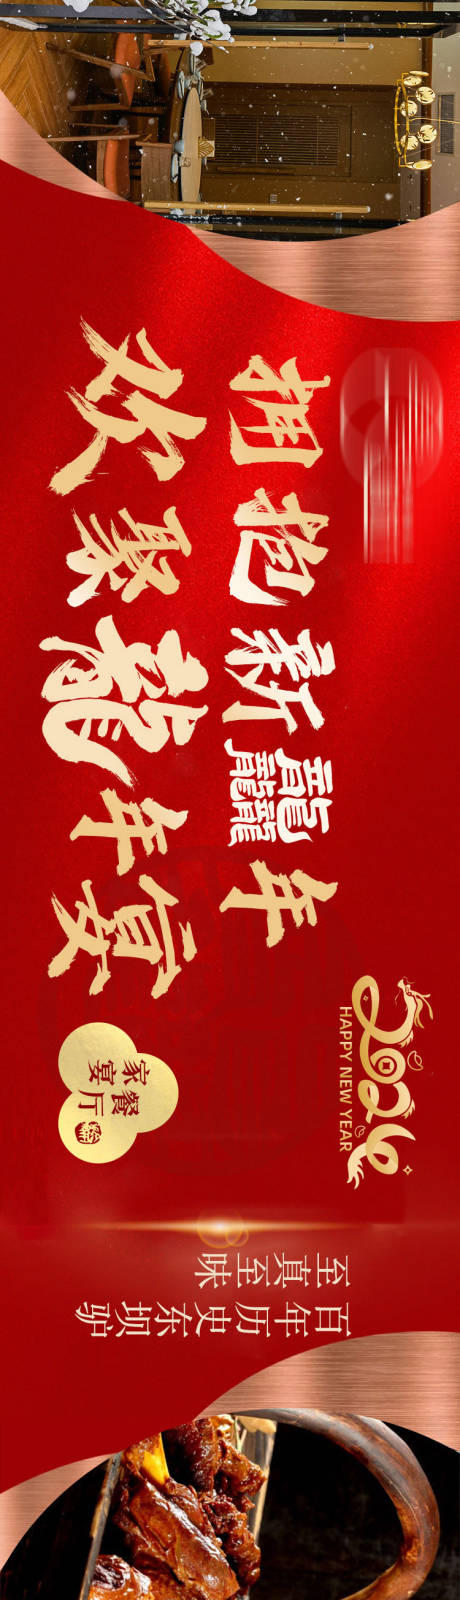 拥抱新龘年
欢聚龍年宴
2026
HAPPY NEW YEAR
家宴
餐厅
至真至味
百年历史东坝驴